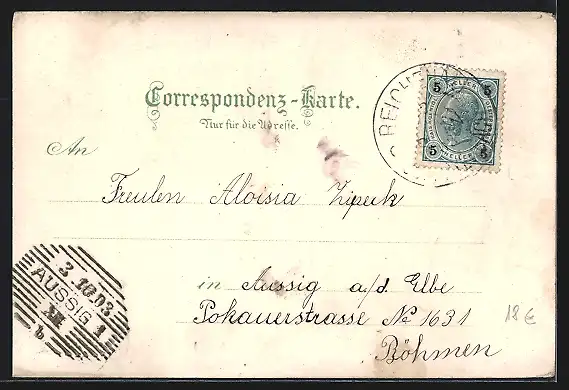 Correspondenz-Karte.
Nur für die Adresse.
An
Freulen Aloisia Zipeck
in Aussig a/d Elbe
Pokauerstrasse No 1631
Böhmen
18€
5 HELLER 5
5 HELLER 5
3.10.03
AUSSIG 1
XII
b